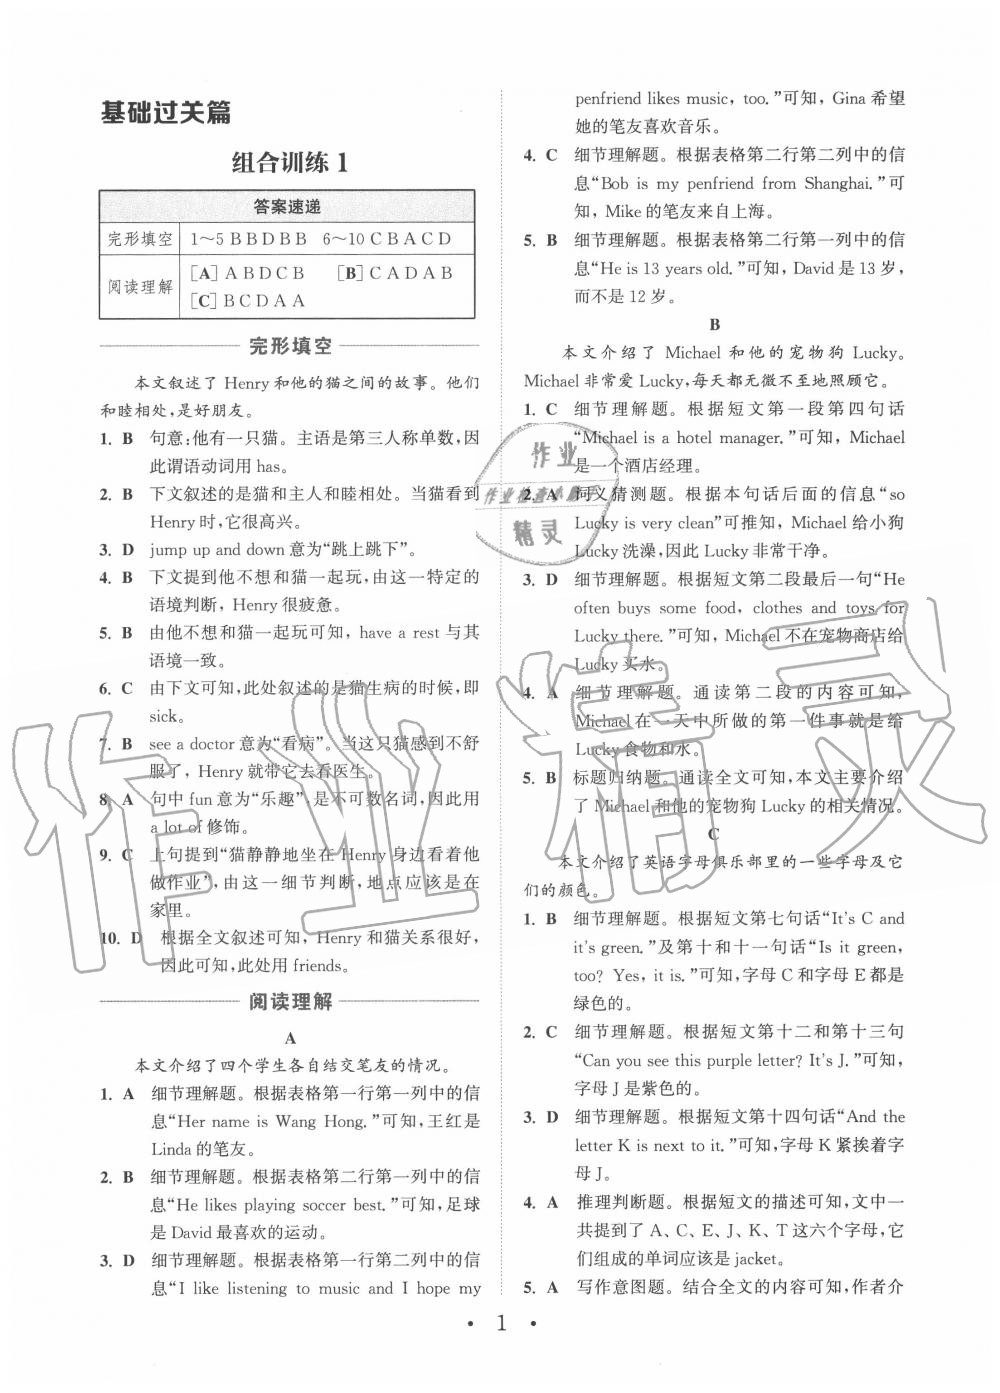 基础过关篇
组合训练 1
答案速递
完形填空 1～5 B B D B B 6～10 C B A C D
阅读理解 [A] A B D C B [B] C A D A B
[C] B C D A A
完形填空
本文叙述了 Henry 和他的猫之间的故事。他们
和睦相处,是好朋友。
1. B 句意:他有一只猫。主语是第三人称单数,因
此谓语动词用 has。
2. B 下文叙述的是猫和主人和睦相处。当猫看到
Henry 时,它很高兴。
3. D jump up and down 意为“跳上跳下”。
4. B 下文提到他不想和猫一起玩,由这一特定的
语境判断,Henry 很疲惫。
5. B 由他不想和猫一起玩可知,have a rest 与其
语境一致。
6. C 由下文可知,此处叙述的是猫生病的时候,即
sick。
7. B see a doctor 意为“看病”。当这只猫感到不舒
服了,Henry 就带它去看医生。
8. A 句中 fun 意为“乐趣”,是不可数名词,因此用
a lot of 修饰。
9. C 上句提到“猫静静地坐在 Henry 身边看着他
做作业”,由这一细节判断,地点应该是在
家里。
10. D 根据全文叙述可知,Henry 和猫关系很好,
因此可知,此处用 friends。
阅读理解
A
本文介绍了四个学生各自结交笔友的情况。
1. A 细节理解题。根据表格第一行第一列中的信
息“Her name is Wang Hong.”可知,王红是
Linda 的笔友。
2. B 细节理解题。根据表格第二行第一列中的信
息“He likes playing soccer best.”可知,足球
是 David 最喜欢的运动。
3. D 细节理解题。根据表格第一行第二列中的信
息“I like listening to music and I hope my
penfriend likes music, too.”可知,Gina 希望
她的笔友喜欢音乐。
4. C 细节理解题。根据表格第二行第二列中的信
息“Bob is my penfriend from Shanghai.”可
知,Mike 的笔友来自上海。
5. B 细节理解题。根据表格第二行第一列中的信
息“He is 13 years old.”可知,David 是 13 岁,
而不是 12 岁。
B
本文介绍了 Michael 和他的宠物狗 Lucky。
Michael 非常爱 Lucky,每天都无微不至地照顾它。
1. C 细节理解题。根据短文第一段第四句话
“Michael is a hotel manager.”可知,Michael
是一个酒店经理。
2. A 词义猜测题。根据本句话后面的信息“so
Lucky is very clean”可推知,Michael 给小狗
Lucky 洗澡,因此 Lucky 非常干净。
3. D 细节理解题。根据短文第二段最后一句“He
often buys some food, clothes and toys for
Lucky there.”可知,Michael 不在宠物商店给
Lucky 买水。
4. A 细节理解题。通读第二段的内容可知,
Michael 在一天中所做的第一件事就是给
Lucky 食物和水。
5. B 标题归纳题。通读全文可知,本文主要介绍
了 Michael 和他的宠物狗 Lucky 的相关情况。
C
本文介绍了英语字母俱乐部里的一些字母及它
们的颜色。
1. B 细节理解题。根据短文第七句话“It's C and
it's green.”及第十和十一句话“Is it green,
too? Yes, it is.”可知,字母 C 和字母 E 都是
绿色的。
2. C 细节理解题。根据短文第十二和第十三句
“Can you see this purple letter? It's J.”可知,
字母 J 是紫色的。
3. D 细节理解题。根据短文第十四句话“And the
letter K is next to it.”可知,字母 K 紧挨着字
母 J。
4. A 推理判断题。根据短文的描述可知,文中一
共提到了 A、C、E、J、K、T 这六个字母,它
们组成的单词应该是 jacket。
5. A 写作意图题。结合全文的内容可知,作者介
• 1 •
作业
作业检查小
精灵
作业精灵